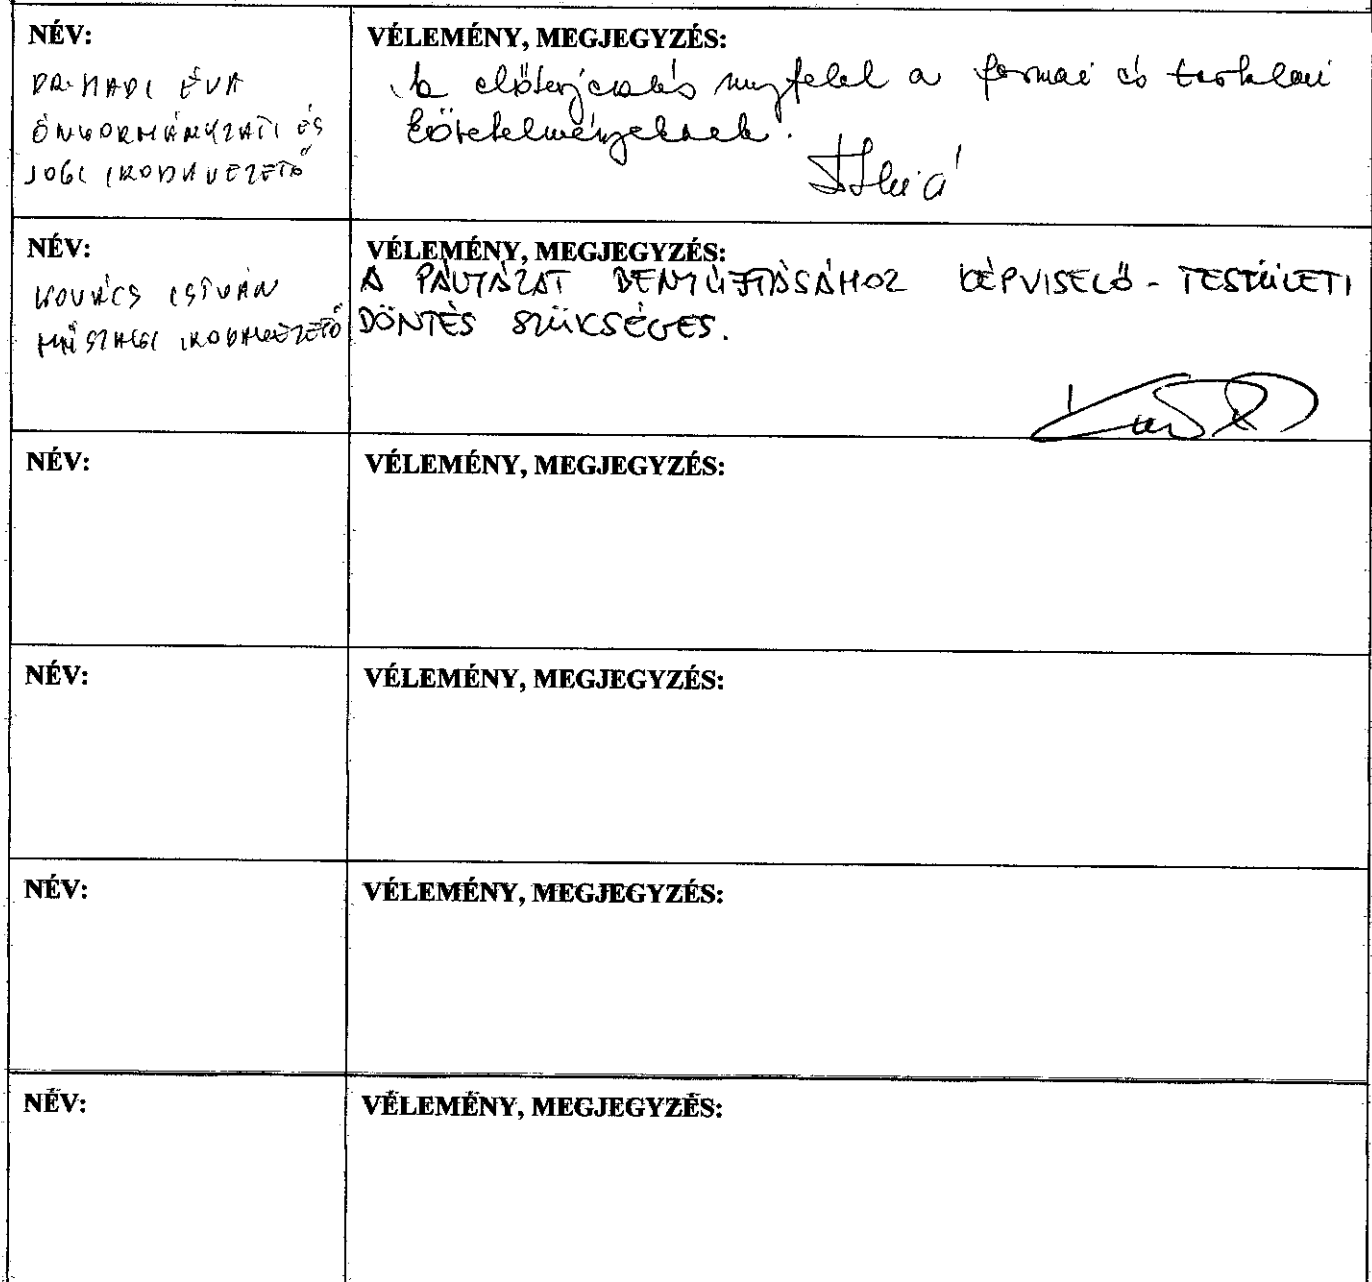 NÉV:
DR. HADI ÉVA
ÖNKORMÁNYZATI ÉS
JOGI IRODAVEZETŐ
VÉLEMÉNY, MEGJEGYZÉS:
Az előterjesztés megfelel a formai és tartalmi
követelményeknek.
NÉV:
KOVÁCS ISTVÁN
MŰSZAKI IRODAVEZETŐ
VÉLEMÉNY, MEGJEGYZÉS:
A PÁLYÁZAT BENYÚJTÁSÁHOZ KÉPVISELŐ-TESTÜLETI
DÖNTÉS SZÜKSÉGES.
NÉV:
VÉLEMÉNY, MEGJEGYZÉS:
NÉV:
VÉLEMÉNY, MEGJEGYZÉS:
NÉV:
VÉLEMÉNY, MEGJEGYZÉS:
NÉV:
VÉLEMÉNY, MEGJEGYZÉS: